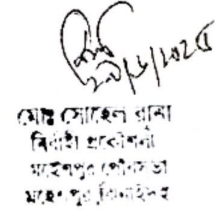 ২৯/৮/২০২৪
মোঃ সোহেল রানা
নির্বাহী প্রকৌশলী
মহেশপুর পৌরসভা
মহেশপুর, ঝিনাইদহ